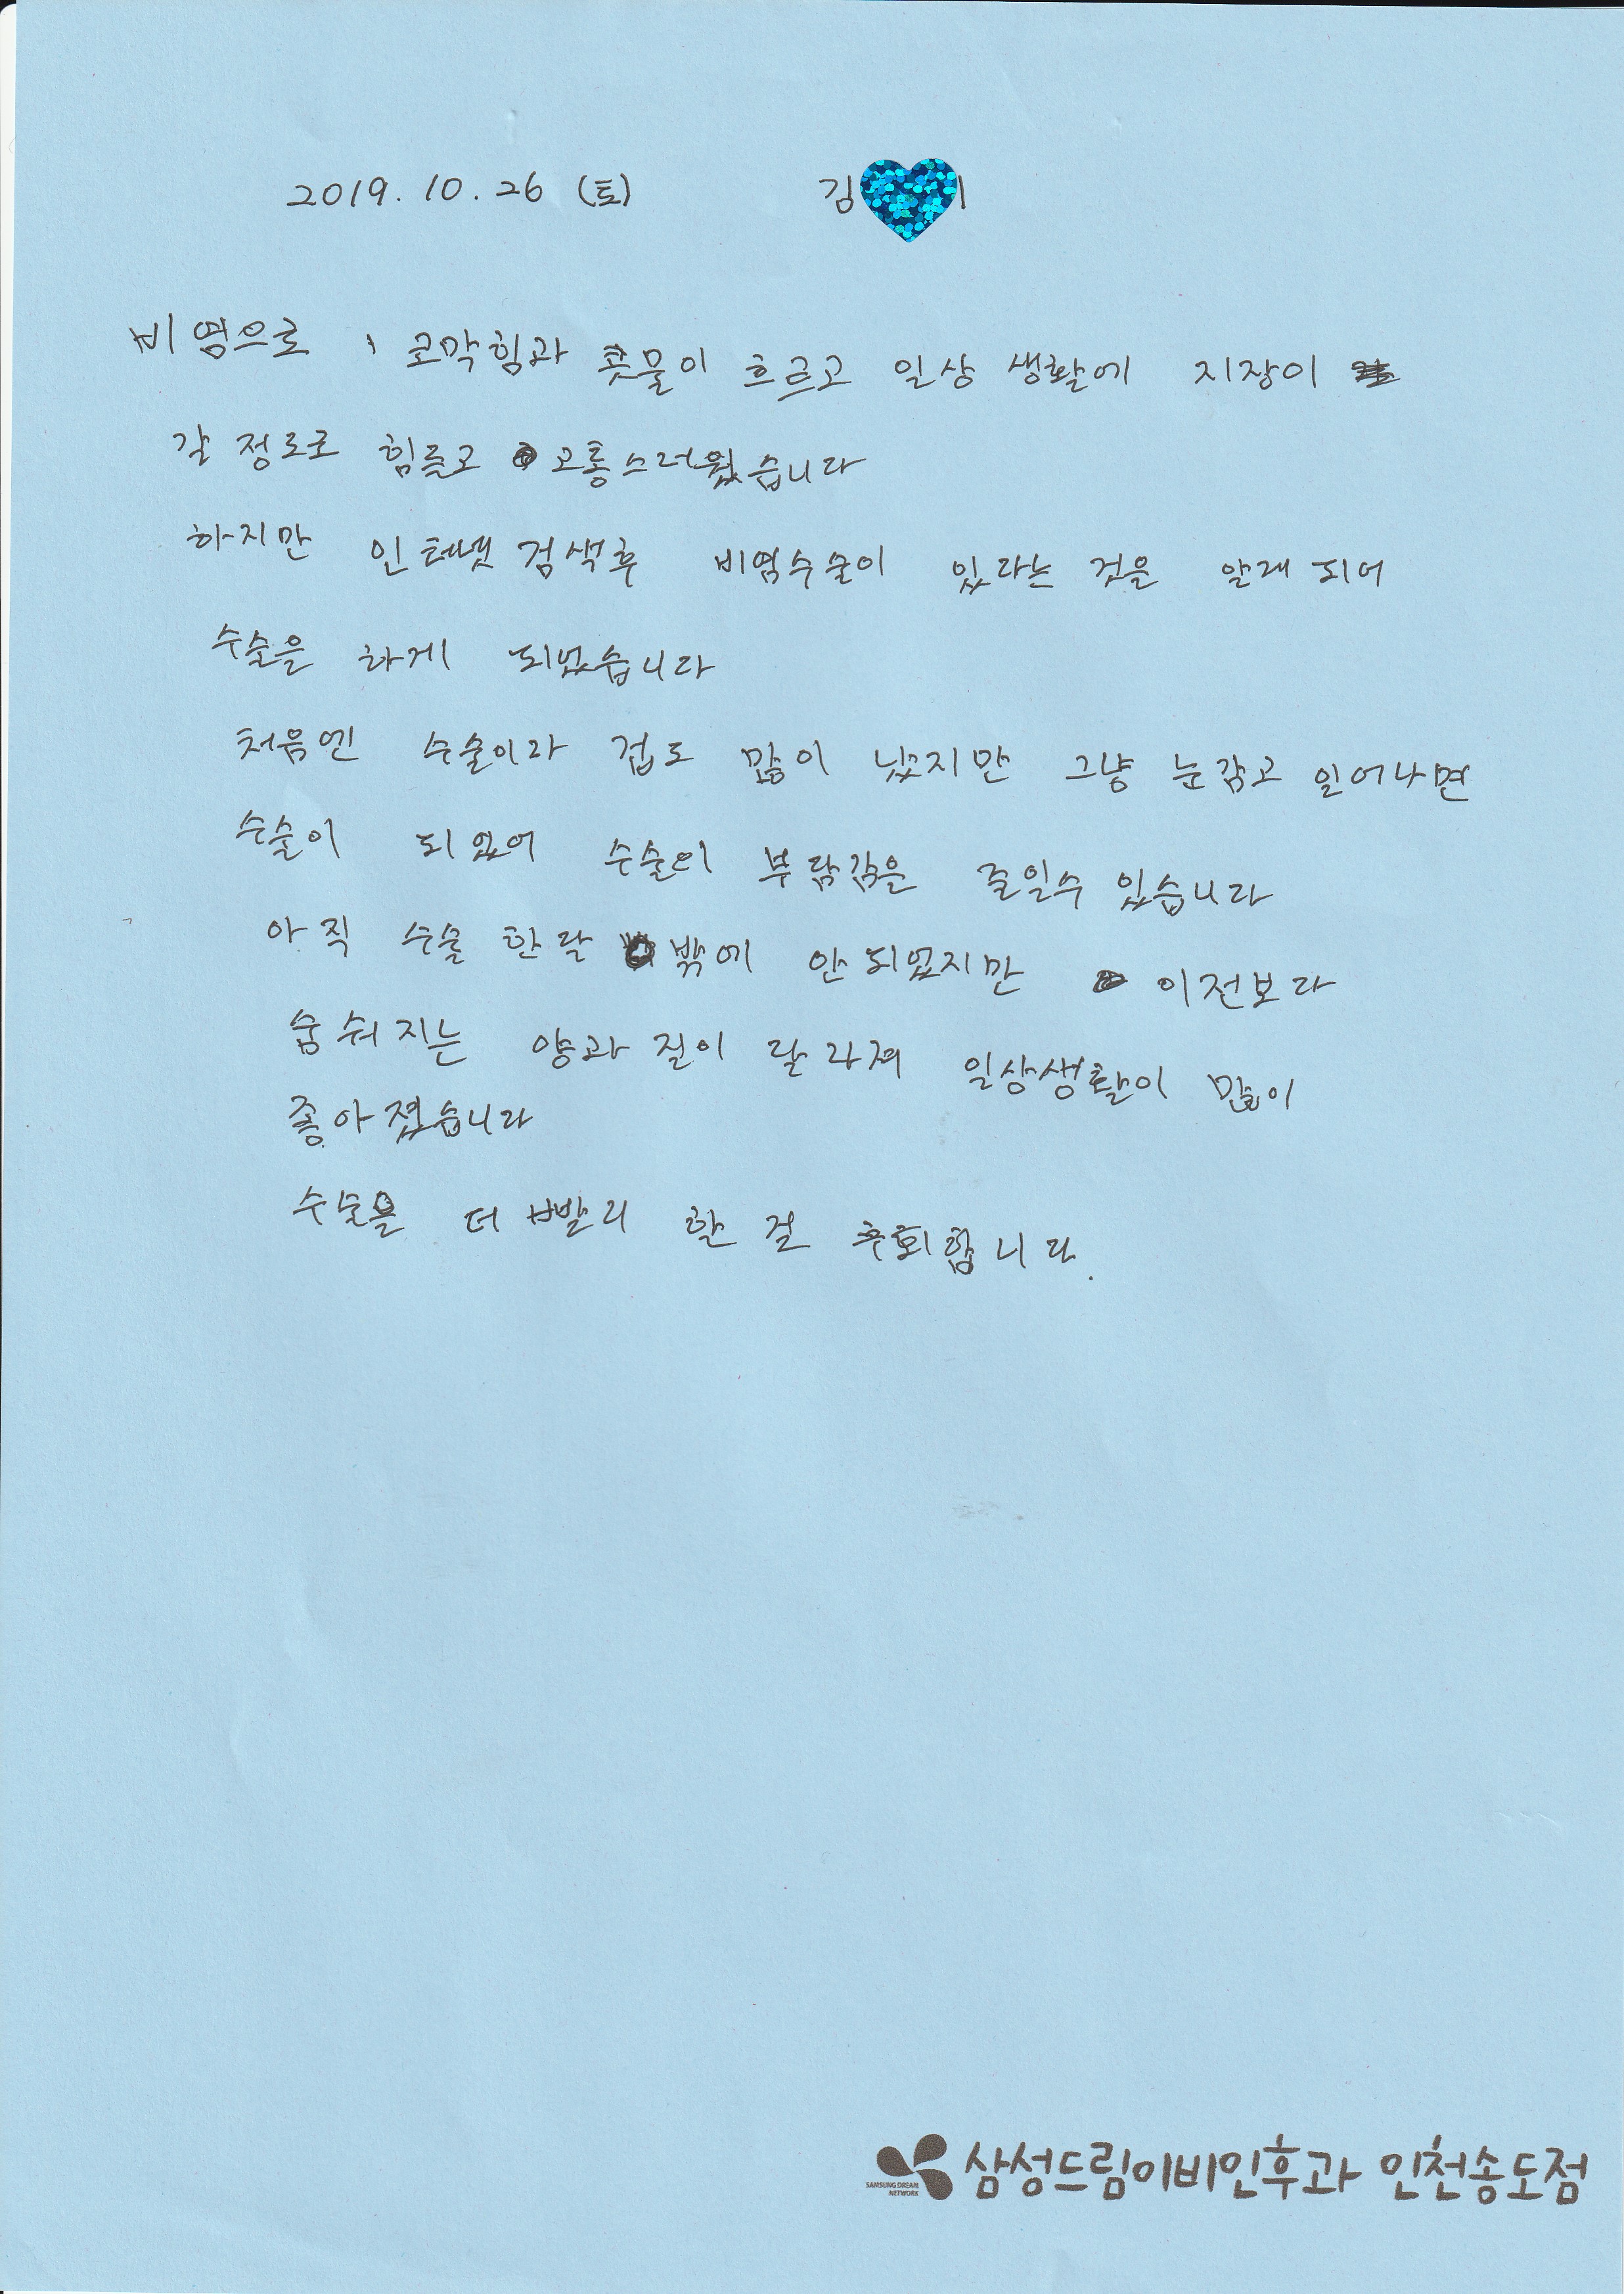 2019. 10. 26 (토) 김
비염으로 , 코막힘과 콧물이 흐르고 일상 생활에 지장이
갈 정도로 힘들고 고통스러웠습니다
하지만 인터넷 검색후 비염수술이 있다는 것을 알게 되어
수술을 하게 되었습니다
처음엔 수술이라 겁도 많이 났지만 그냥 눈감고 일어나면
수술이 되있어 수술의 부담감을 줄일수 있습니다
아직 수술 한달 밖에 안되었지만 이전보다
숨쉬지는 양과 질이 달라져 일상생활이 많이
좋아졌습니다
수술을 더 빨리 할 걸 후회합니다.
SAMSUNG DREAM
NETWORK
삼성드림이비인후과 인천송도점